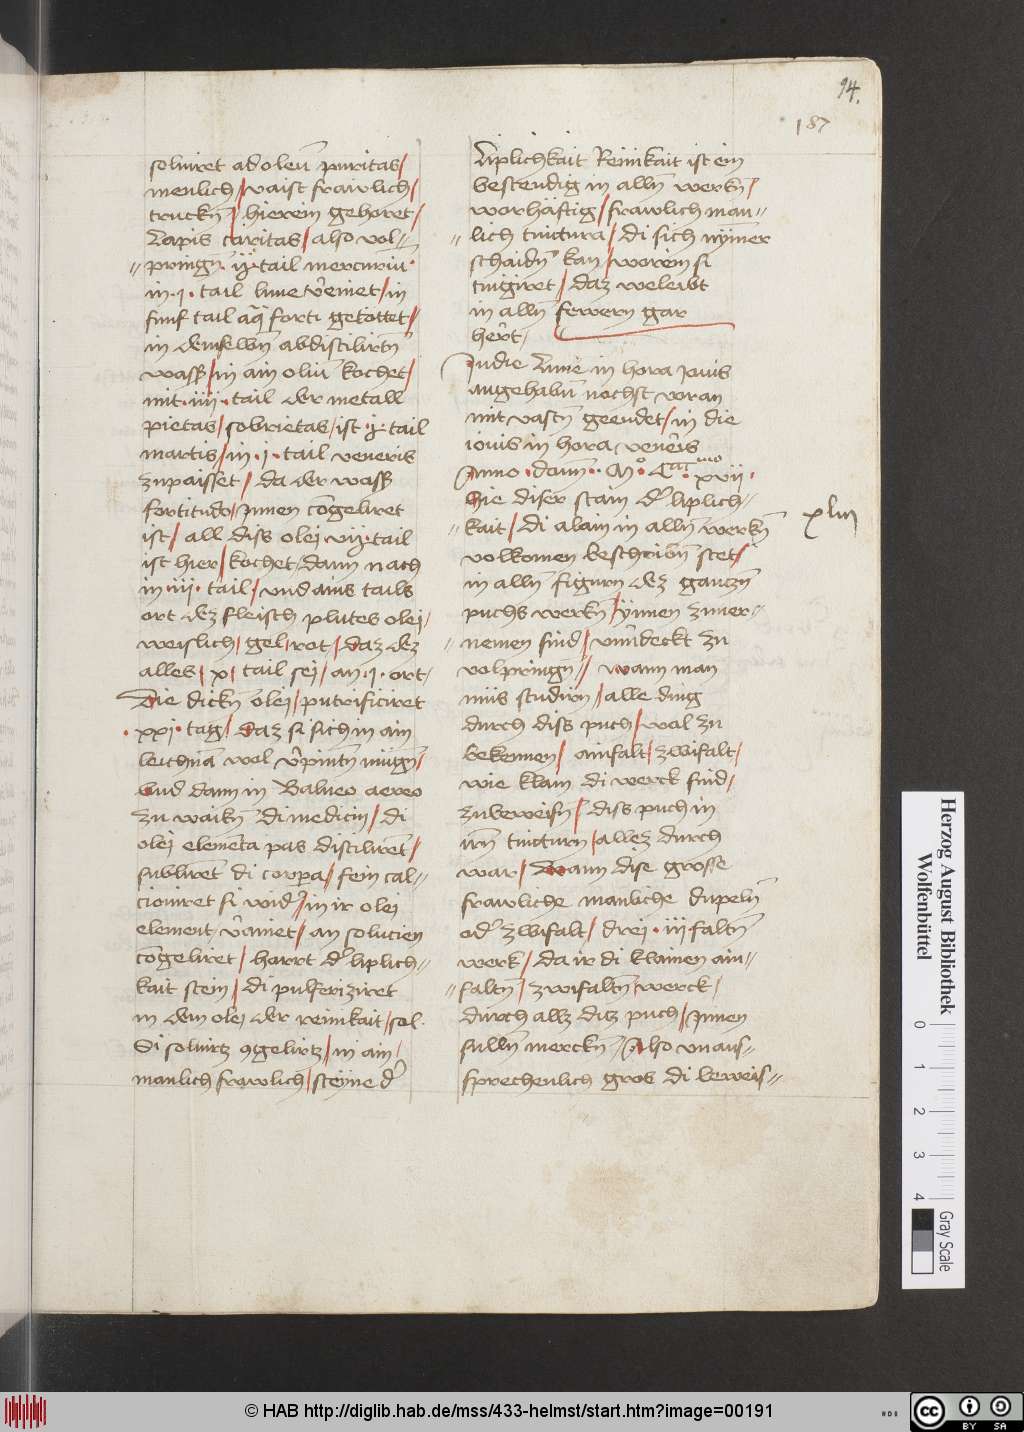 94.
187
soluiret ad oleū puritas/
menlich/ vaist frawlich/
truckn̄/ hierein gehoret/
Lapis caritas/ also vol-//
//pringn̄ · ij · tail mercuriū ·
in · j · tail lune v̄einet/ in
funf tail aq̄ forti getöttet//
in demselbn̄ abdistilirtn̄
wass̄/ in ain oliū kochet/
mit · iiij · tail der metall
pietas/ sobrietas/ ist · j · tail
martis/ in · j · tail veneris
zupaisset/ da der wass̄
fortitudo/ Jnnen cōgeliret
ist/ all diss olej vij · tail
ist hier/ kochet/ dann nach
in iij · tail/ vnd ains tails
ort dez fleisch plutes olej/
weislich/ gel/ rot/ daz dez
alles/ x/ tail sej/ an · j · ort/
Die dickn̄ olej/ putrificiret
· xxj · tag/ daz si sich in ain
leichnā wol v̄pintn̄ mügn̄/
Vnd dann in Balneo aereo
zu waikn̄ di medicin/ di
olej elemēta pas distiliret/
subliret di corpa/ fein cal-//
cioniret si wid̄/ in ir olej
element v̄ainet/ an solucien
cōgeliret/ harrt d̄ liplich-//
kait stein/ di pulferiziret
in dem olej der reinikait/ sol ·
Si soluirtz ꝯgelirtz/ in ain/
manlich frawlich/ steyne d̄
Liplichkait Reinikait ist ein
bestendig in alln̄ werkn̄/
worhäftig/ frawlich man-//
//lich tinctura/ di sich nymer
schaidn̄ kan/ worein si
tingiret/ daz weleibt
in alln̄ fewern gar
hert/
Jn die Lune in hora jouis
angehabn̄ nechst voran
mit vastn̄ geendet/ in die
iouis in hora veneris
Anno · dom̄ · · Mº · CCCCmo · xvij ·
Hie diser stain d̄ liplich-//
xliij
//kait/ di alain in alln̄ werkn̄
volkomen beschribn̄ stet/
in alln̄ figurn dez ganczn̄
puchs werkn̄/ ynnen zuuer-//
//nemen sind/ vnuerdeckt zu
volpringn̄// wann man
mus studirn/ alle ding
durch diss puch/ wal zu
bekennen/ ainfalt/ zwifalt/
wie klain di werck sind/
zubeweisn̄/ diss puch in
irn̄ tincturn/ allez durch
war/ Wann dise grosse
frawliche manliche dupeln̄
od̄ zwifalt/ drej · iij faltn̄
werk/ da ir di klainen ain-//
//faltn̄/ zwifaltn̄ werck/
durch allz ditz puch/ Jnnen
sulln̄ merckn̄/ Also vnaus-//
sprechenlich gros di beweis-//
Herzog August Bibliothek
Wolfenbüttel
0 1 2 3 4
Gray Scale
© HAB http://diglib.hab.de/mss/433-helmst/start.htm?image=00191
cc BY SA